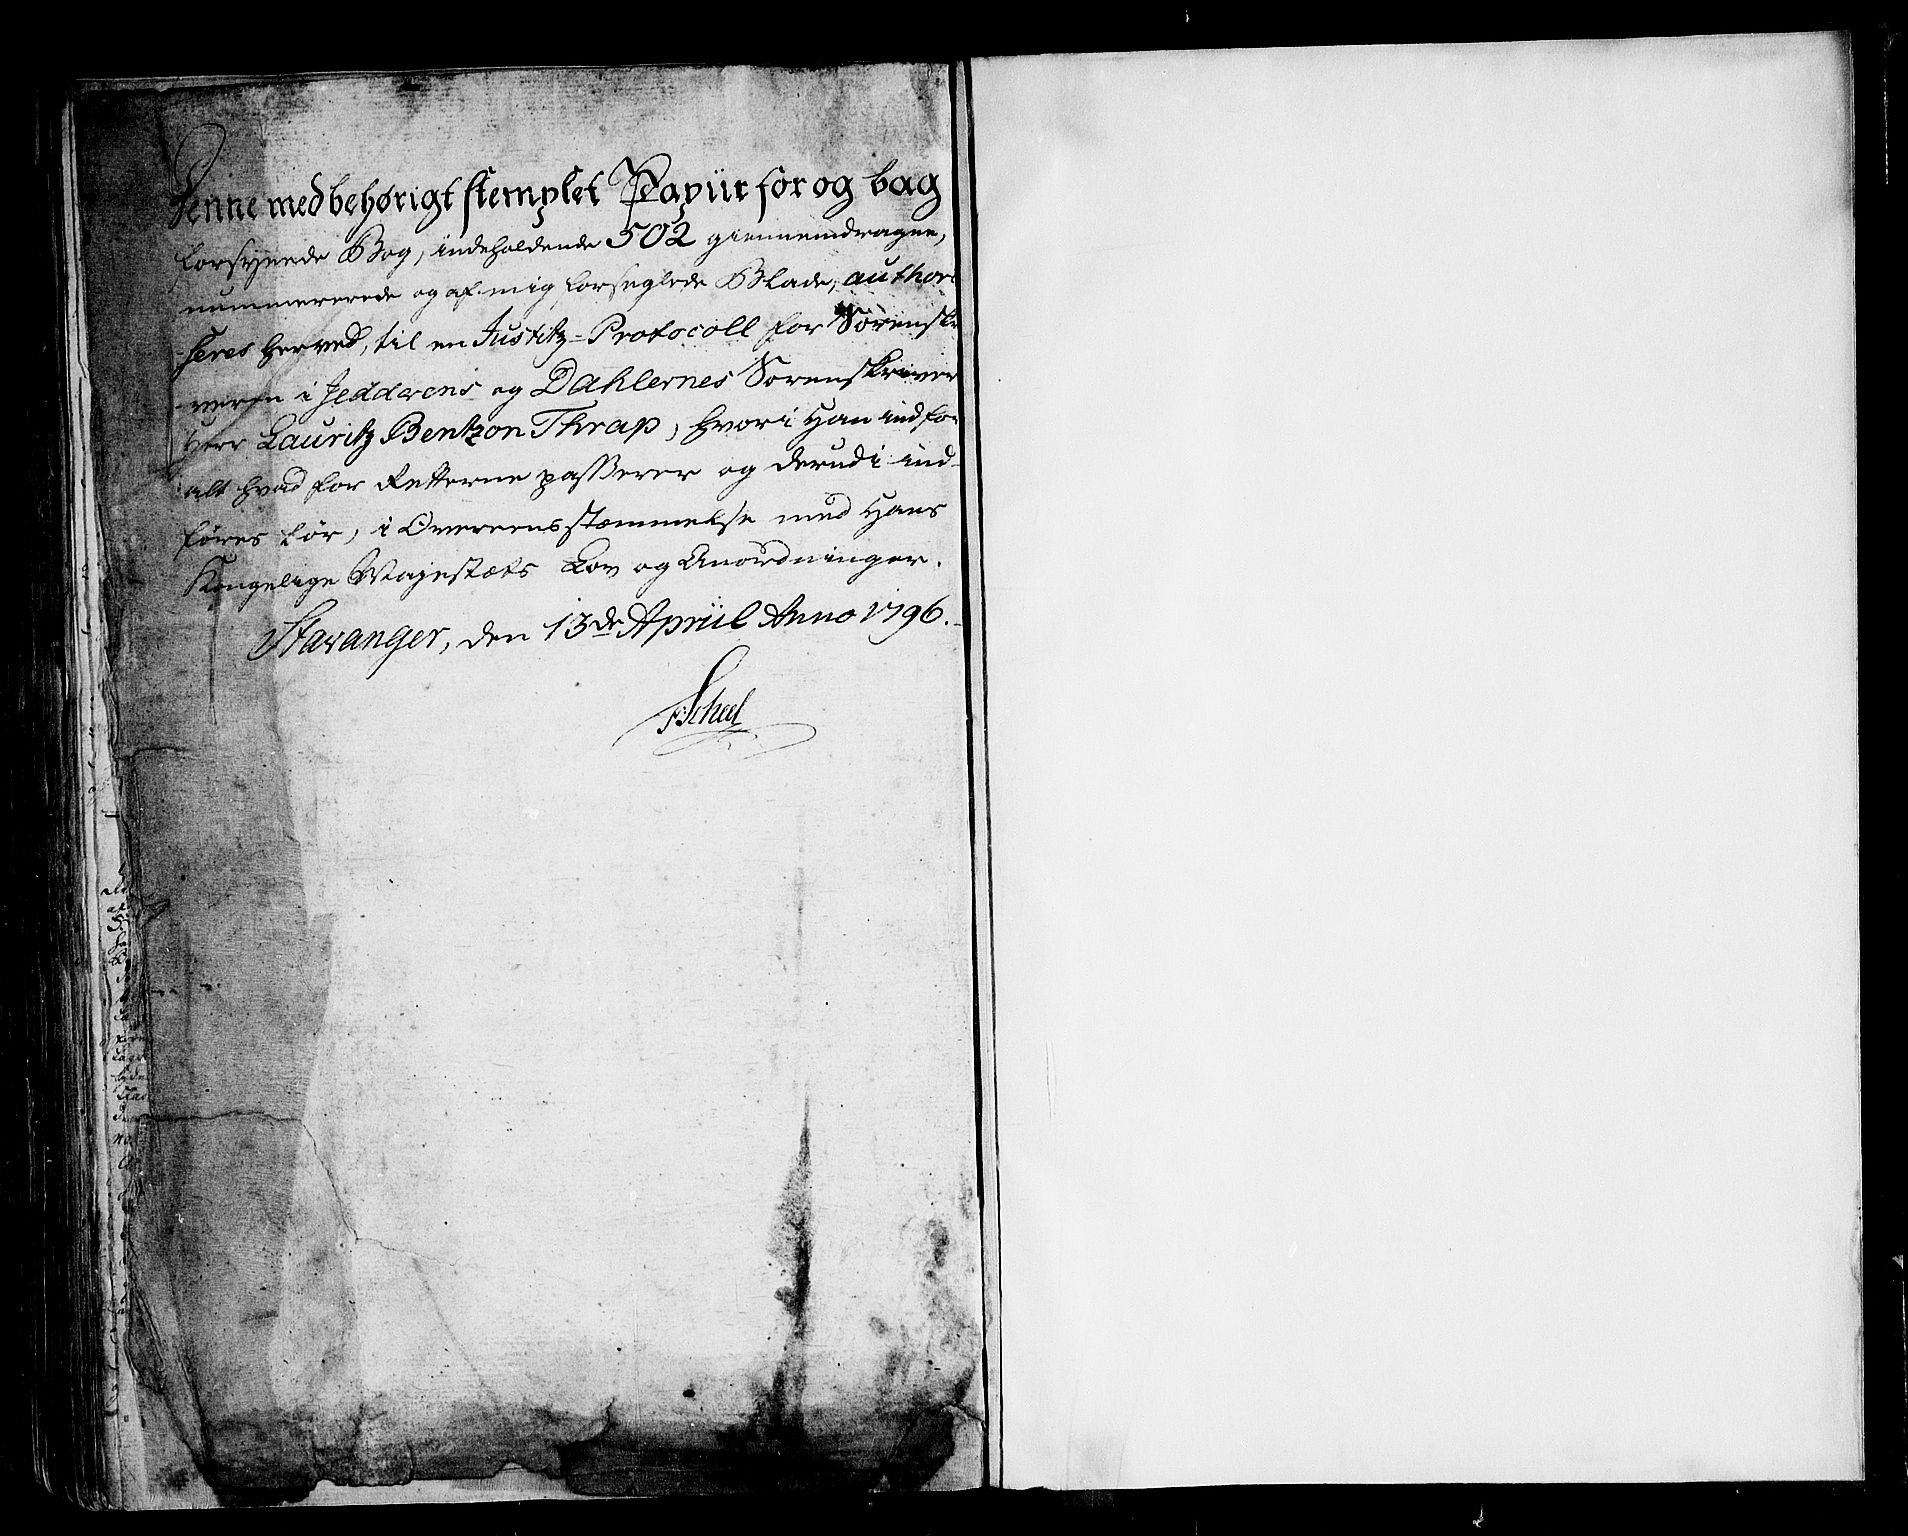 Denne med behørigt stemplet Papiir for og bag
forsynede Bog, indeholdende 502 giennemdragne,
nummererede og af mig forseglede Blade, authori
seres herved, til en Justitz-Protocoll for Sorenskri
veren i Jedderens og Dahlernes Sorenskriverie
Herr Lauritz Bentzon Thrap, hvori Han indfø-
alt hvad for Retterne passerer og derudi ind-
føres bør, i Overeensstemmelse med Hans
Kongelige Majestæts Lov og Anordninger.
Stavanger, den 13de Apriil Anno 1796.
F: Scheel